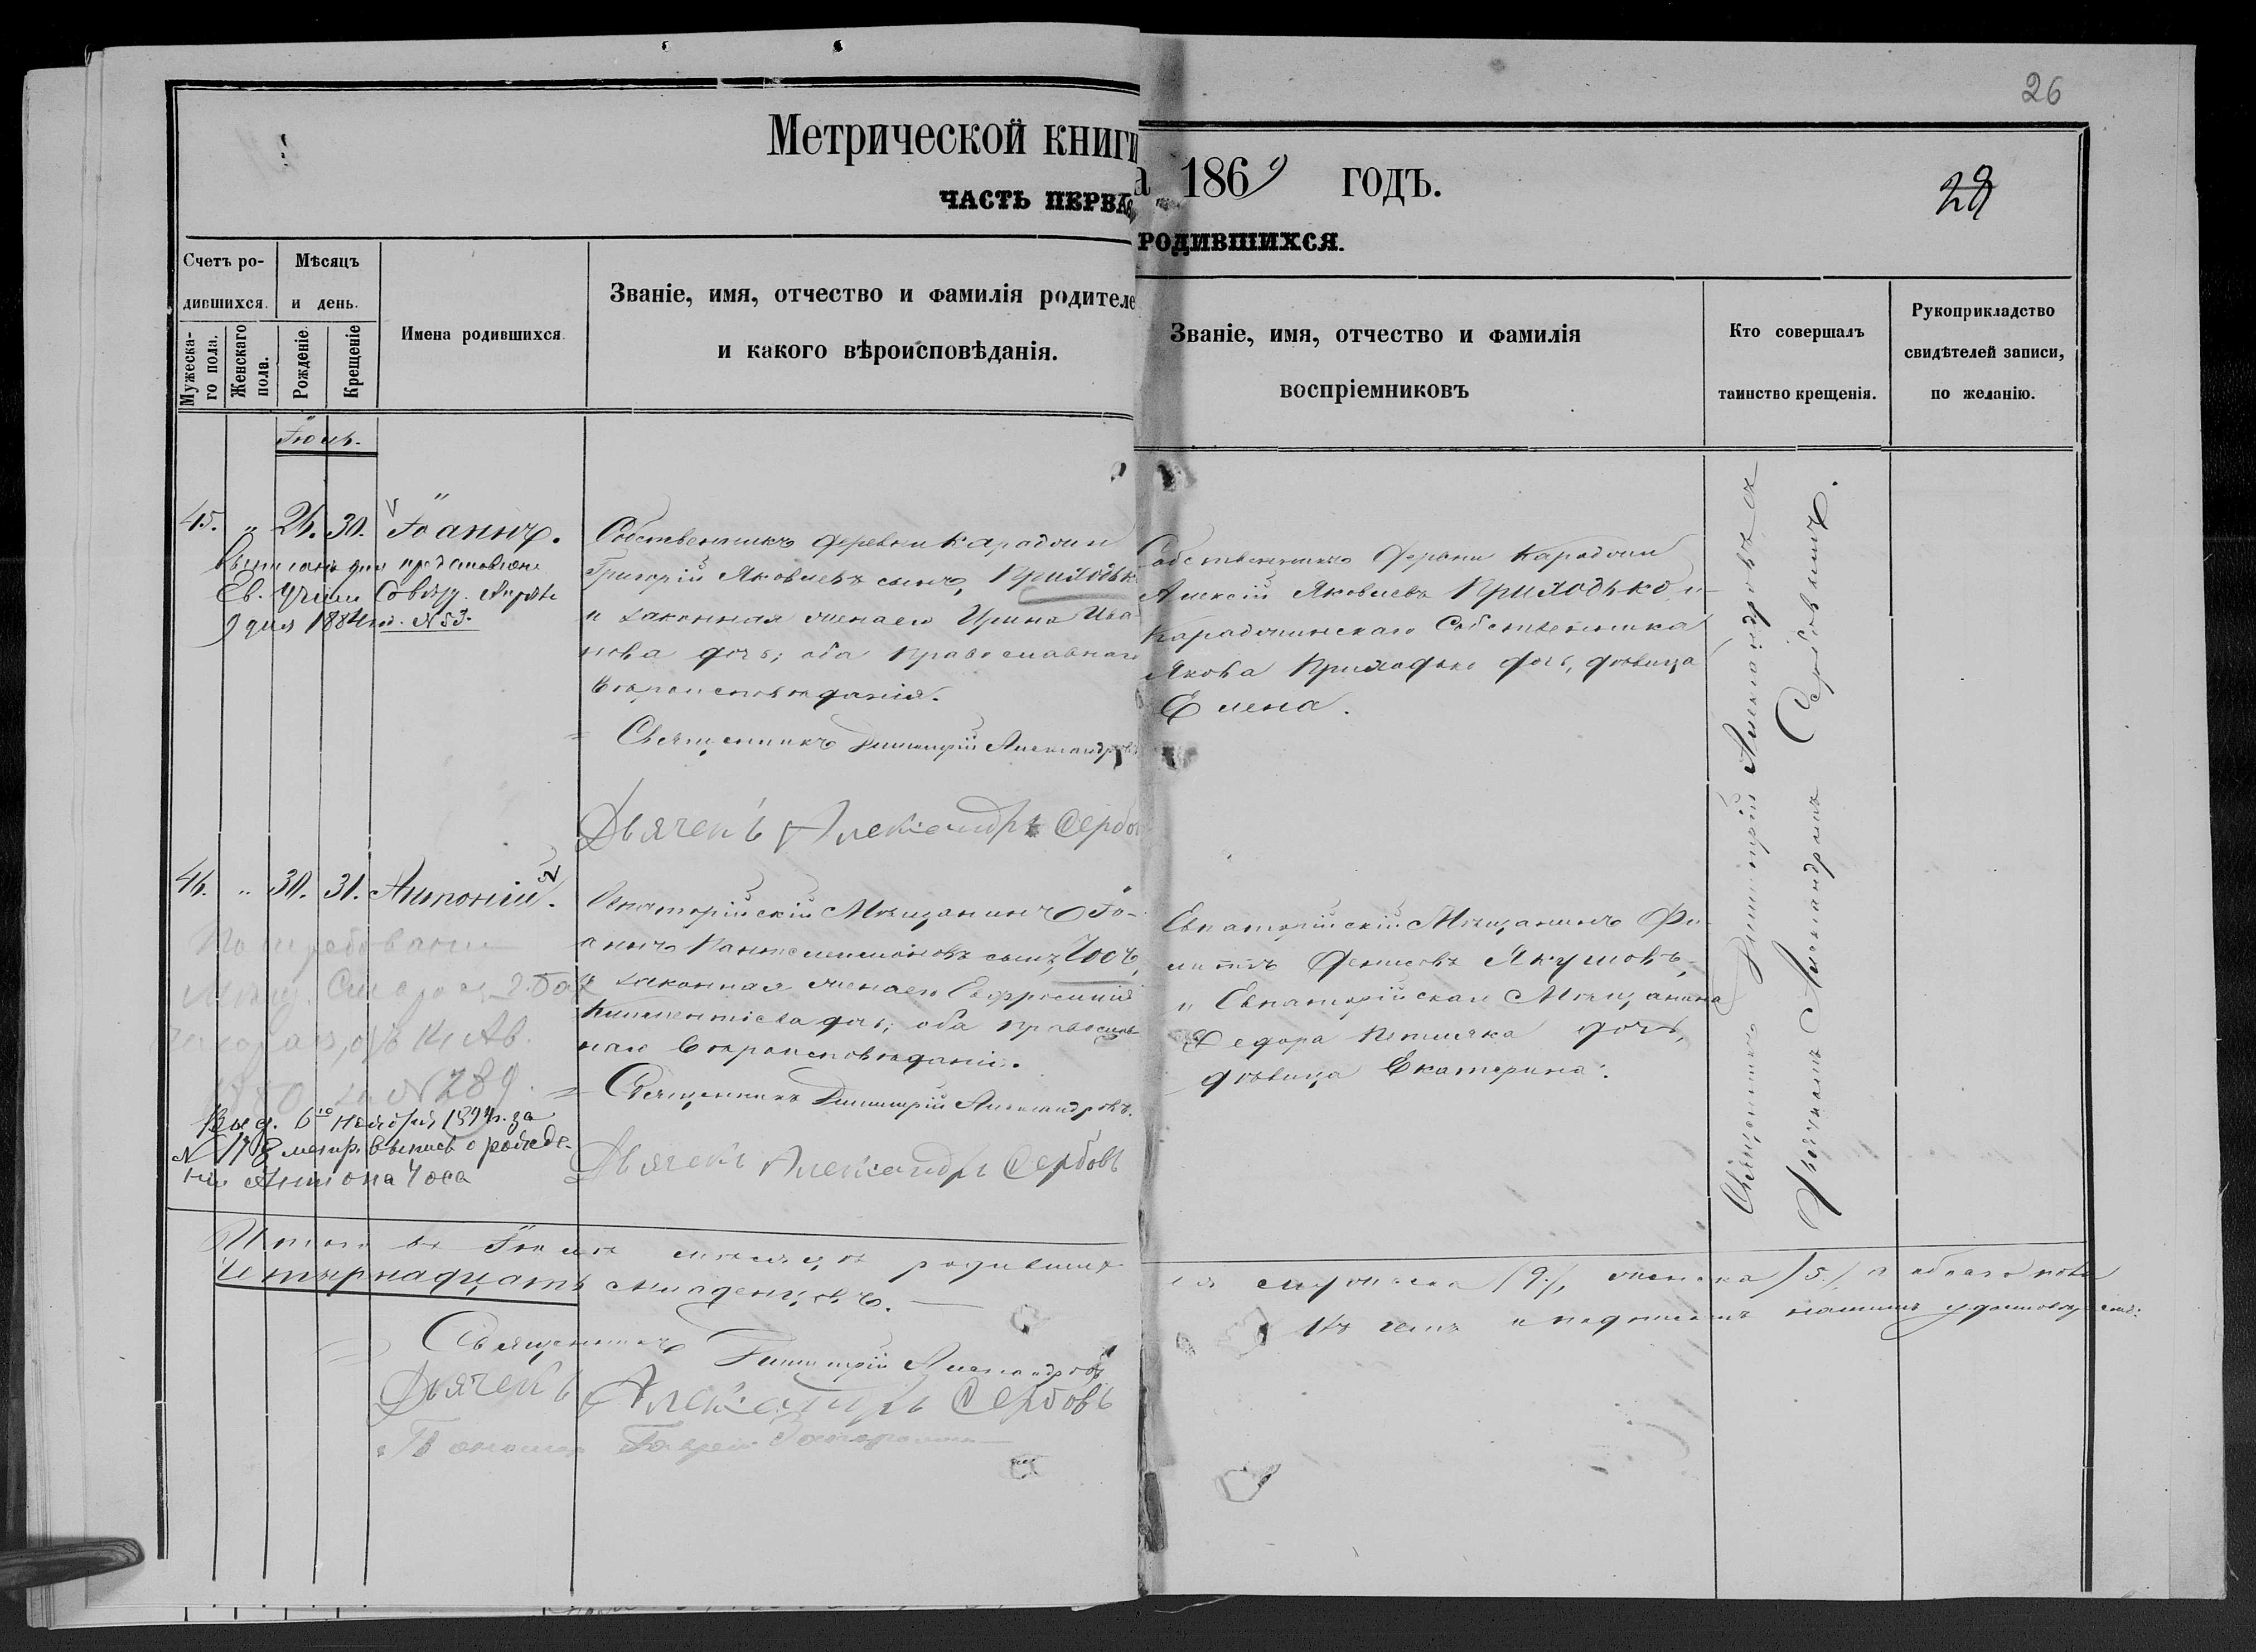 26
Метрической книги
а 1869 годъ.
29
ЧАСТЬ ПЕРВАЯ
РОДИВШИХСЯ.
Счетъ ро-
дившихся.
Мужеска-
го пола.
Женскаго
пола.
Мѣсяцъ
и день.
Рожденіе.
Крещеніе
Имена родившихся.
Званіе, имя, отчество и фамилія родителе
и какого вѣроисповѣданія.
Званіе, имя, отчество и фамилія
воспріемниковъ
Кто совершалъ
таинство крещенія.
Рукоприкладство
свидѣтелей записи,
по желанію.
Іюль.
45. " 30. Іоаннъ.
для представленія
9 дня 1884 год. № 53.
Собственникъ деревни Карадачи
Григорій Яковлевъ сынъ, Приходьк
и законная жена его Ирина Ива
нова дочь; оба православнаго
вѣроисповѣданія.
Священникъ Димитрій Александровъ
Дьячекъ Александръ Сербов
Собственникъ деревни Карадачи
Алексій Яковлевъ Приходько, и
Карадачинскаго Собственника
Якова Приходько дочь, дѣвица
Елена.
Священникъ Димитрій Александровъ
Дьячкомъ Александромъ Сербовымъ.
46. " 30. 31. Антоній.
По требованію
№ 289.
Выд. 6го Ноября за
метр. выпись о рожде-
ніи Антона Чоса
Евпаторійскій Мѣщанинъ Іо-
аннъ Пантелеимоновъ сынъ, Чосъ,
и законная жена его Евфросинія
Климентіева дочь; оба православ
наго вѣроисповѣданія.
Священникъ Димитрій Александровъ.
Дьячекъ Александръ Сербовъ
Евпаторійскій Мѣщанинъ Фи-
липпъ Денисовъ Якушовъ,
и Евпаторійскаго Мѣщанина
Федора дочь,
дѣвица Екатерина.
Итого въ Іюлѣ мѣсяцѣ родивших
ся мужеска /9./, женска /5./, а обоего пола
четырнадцать младенцовъ.
Въ чемъ и подписомъ нашимъ удостовѣряемъ:
Священникъ Димитрій Александровъ
Дьячекъ Александръ Сербовъ
Пономарь